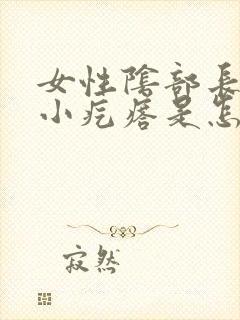 女性陰部長
小疙瘩是怎
寂然